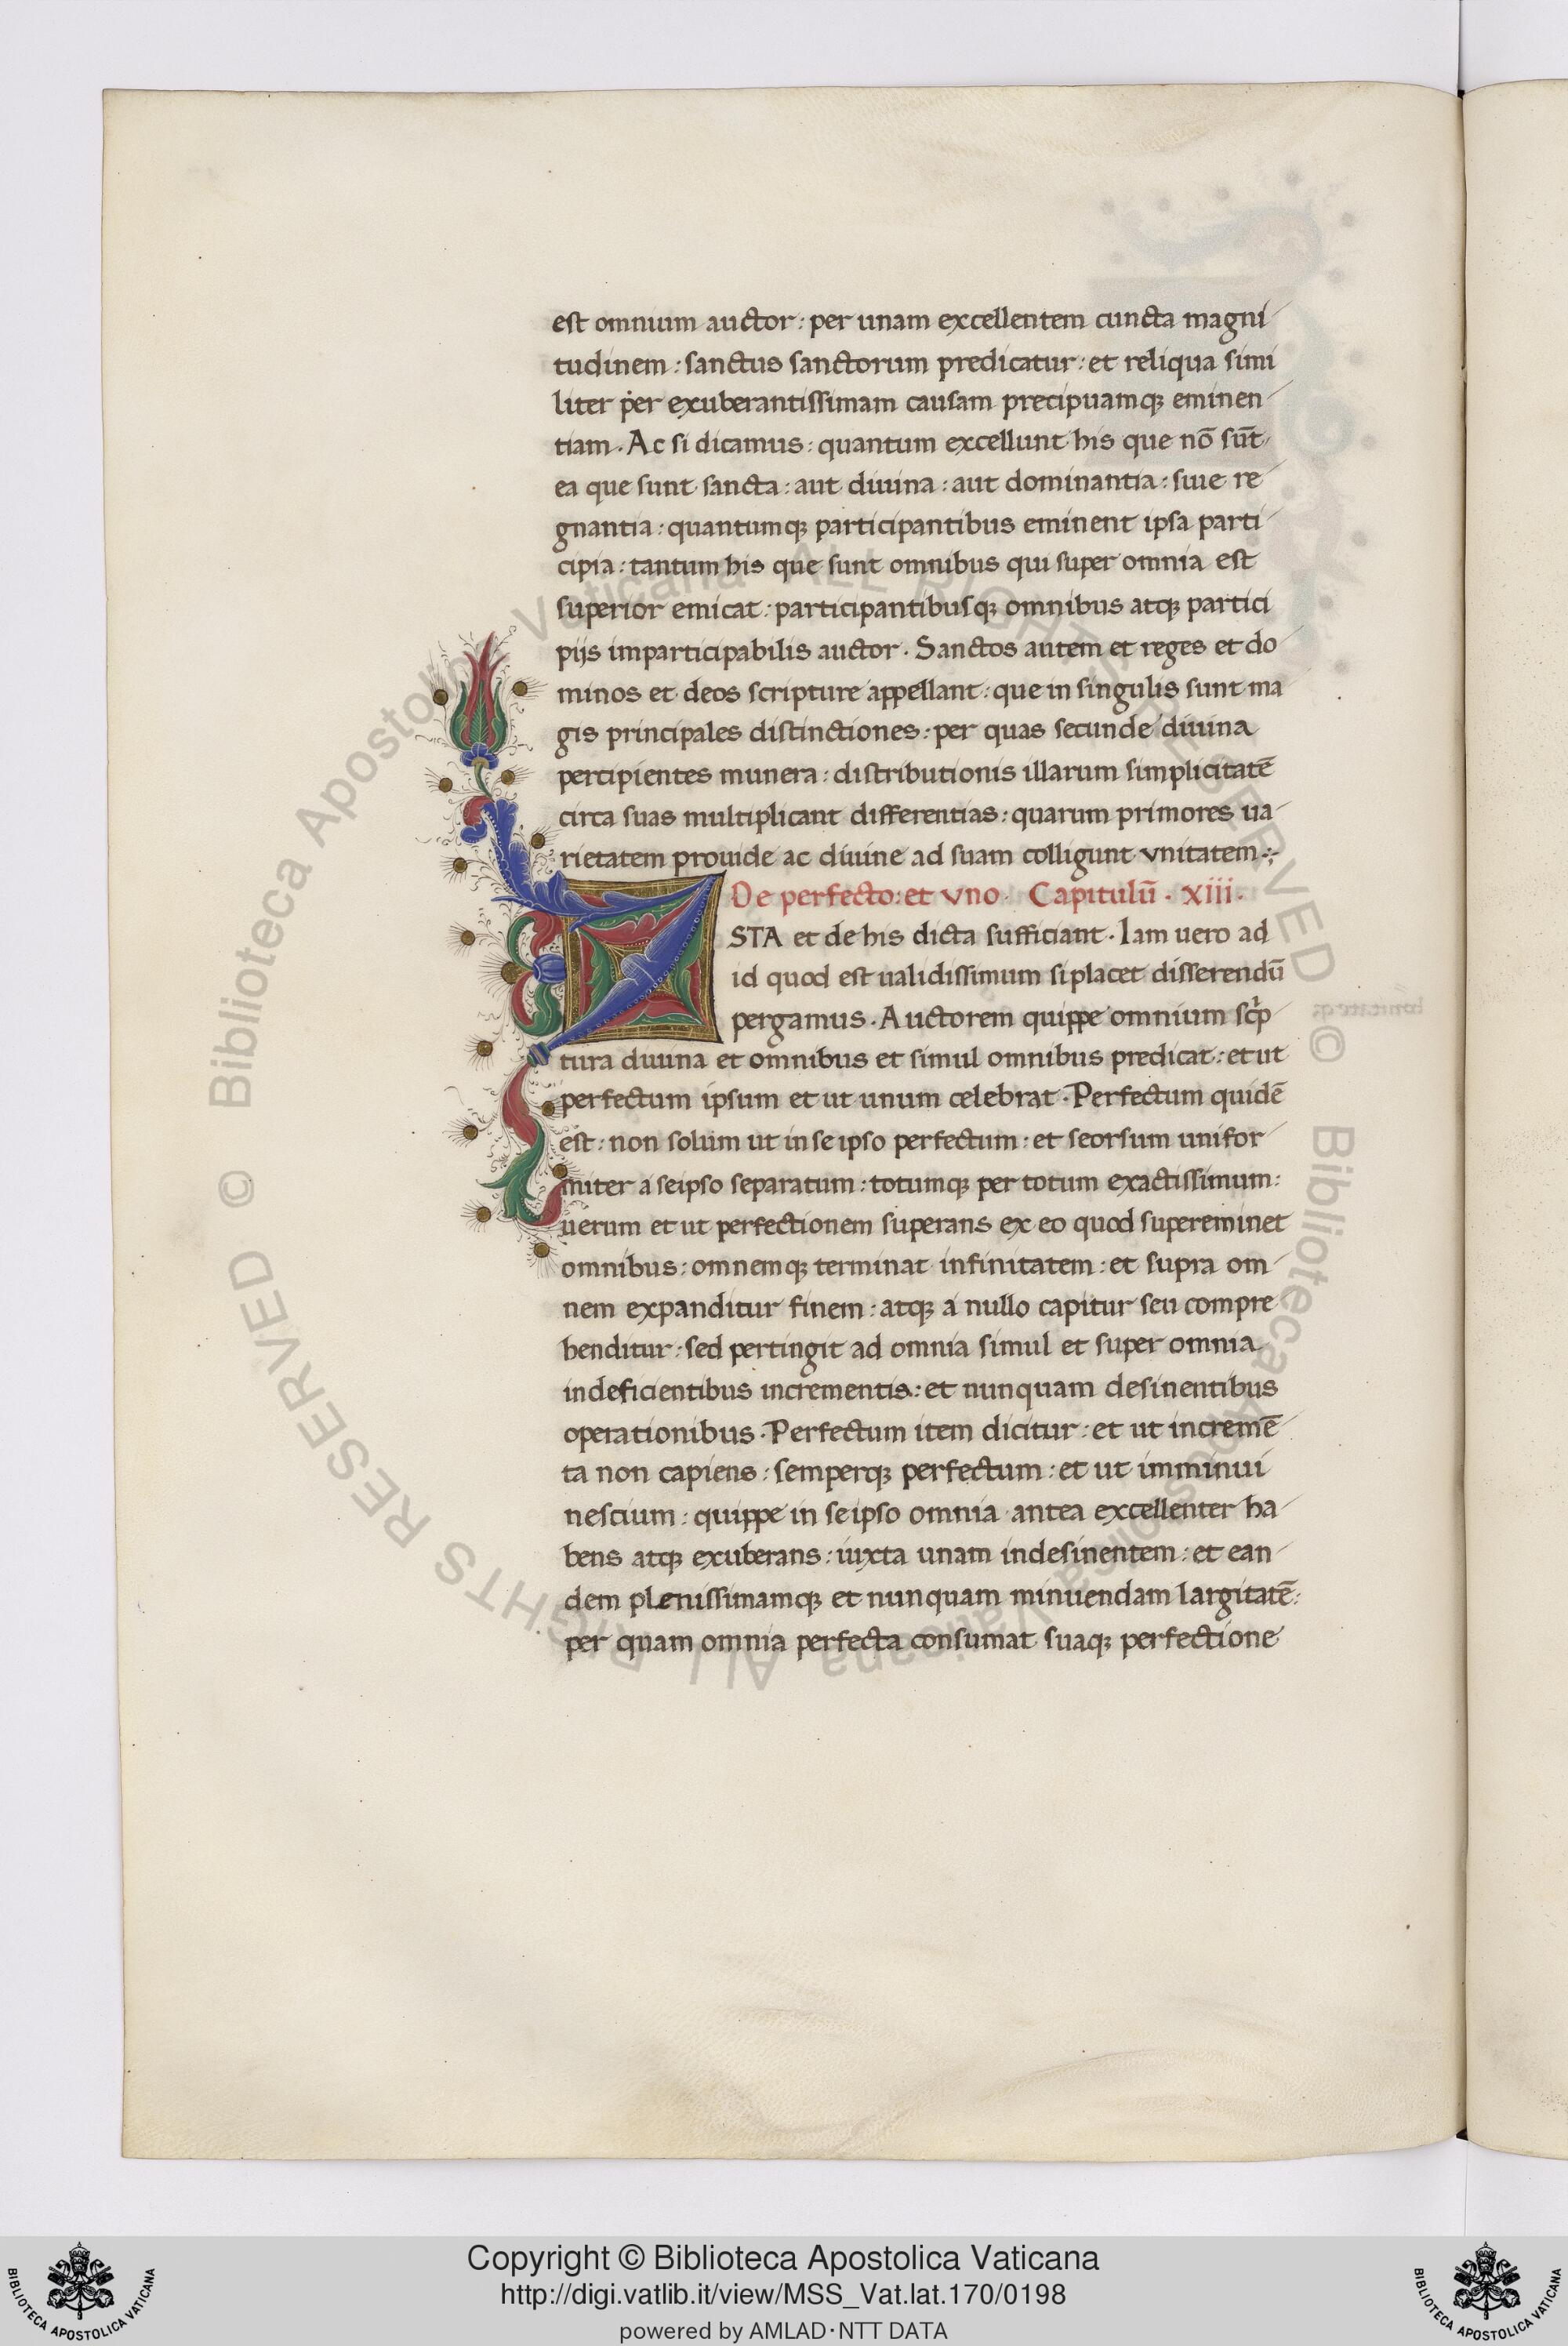 est omnium auctor : per unam excellentem cuncta magni
tudinem : sanctus sanctorum predicatur : et reliqua simi
liter per exuberantissimam causam precipuamqꝫ eminen
tiam . Ac si dicamus : quantum excellunt his que nō sūt
ea que sunt sancta : aut diuina : aut dominantia : siue re
gnantia : quantumqꝫ participantibus eminent ipsa parti
cipia : tantum his que sunt omnibus qui super omnia est
superior emicat : participantibusqꝫ omnibus atqꝫ partici
pijs imparticipabilis auctor . Sanctos autem et reges et do
minos et deos scripture appellant : que in singulis sunt ma
gis principales distinctiones : per quas secunde diuina
percipientes munera : distributionis illarum simplicitatē
circa suas multiplicant differentias : quarum primores ua
rietatem prouide ac diuine ad suam colligunt vnitatem :~
De perfecto : et vno . Capitulū . xiii .
ISTA et de his dicta sufficiant . Iam uero ad
id quod est ualidissimum si placet disserendū
pergamus . Auctorem quippe omnium scrip
tura diuina et omnibus et simul omnibus predicat : et ut
perfectum ipsum et ut unum celebrat . Perfectum quidē
est : non solum ut in se ipso perfectum : et seorsum unifor
miter a seipso separatum : totumqꝫ per totum exactissimum :
uerum et ut perfectionem superans ex eo quod supereminet
omnibus : omnemqꝫ terminat infinitatem : et supra om
nem expanditur finem : atqꝫ a nullo capitur seu compre
henditur : sed pertingit ad omnia simul et super omnia
indeficientibus incrementis : et nunquam desinentibus
operationibus . Perfectum item dicitur : et ut incremē
ta non capiens : semperqꝫ perfectum : et ut imminui
nescium : quippe in se ipso omnia antea excellenter ha
bens atqꝫ exuberans : iuxta unam indesinentem : et ean
dem plenissimamqꝫ et nunquam minuendam largitatē :
per quam omnia perfecta consumat suaqꝫ perfectione
© Biblioteca Apostolica Vaticana ALL RIGHTS RESERVED © Biblioteca Apostolica Vaticana ALL RIGHTS RESERVED
Copyright © Biblioteca Apostolica Vaticana
http://digi.vatlib.it/view/MSS_Vat.lat.170/0198
powered by AMLAD·NTT DATA
BIBLIOTECA APOSTOLICA VATICANA
BIBLIOTECA APOSTOLICA VATICANA